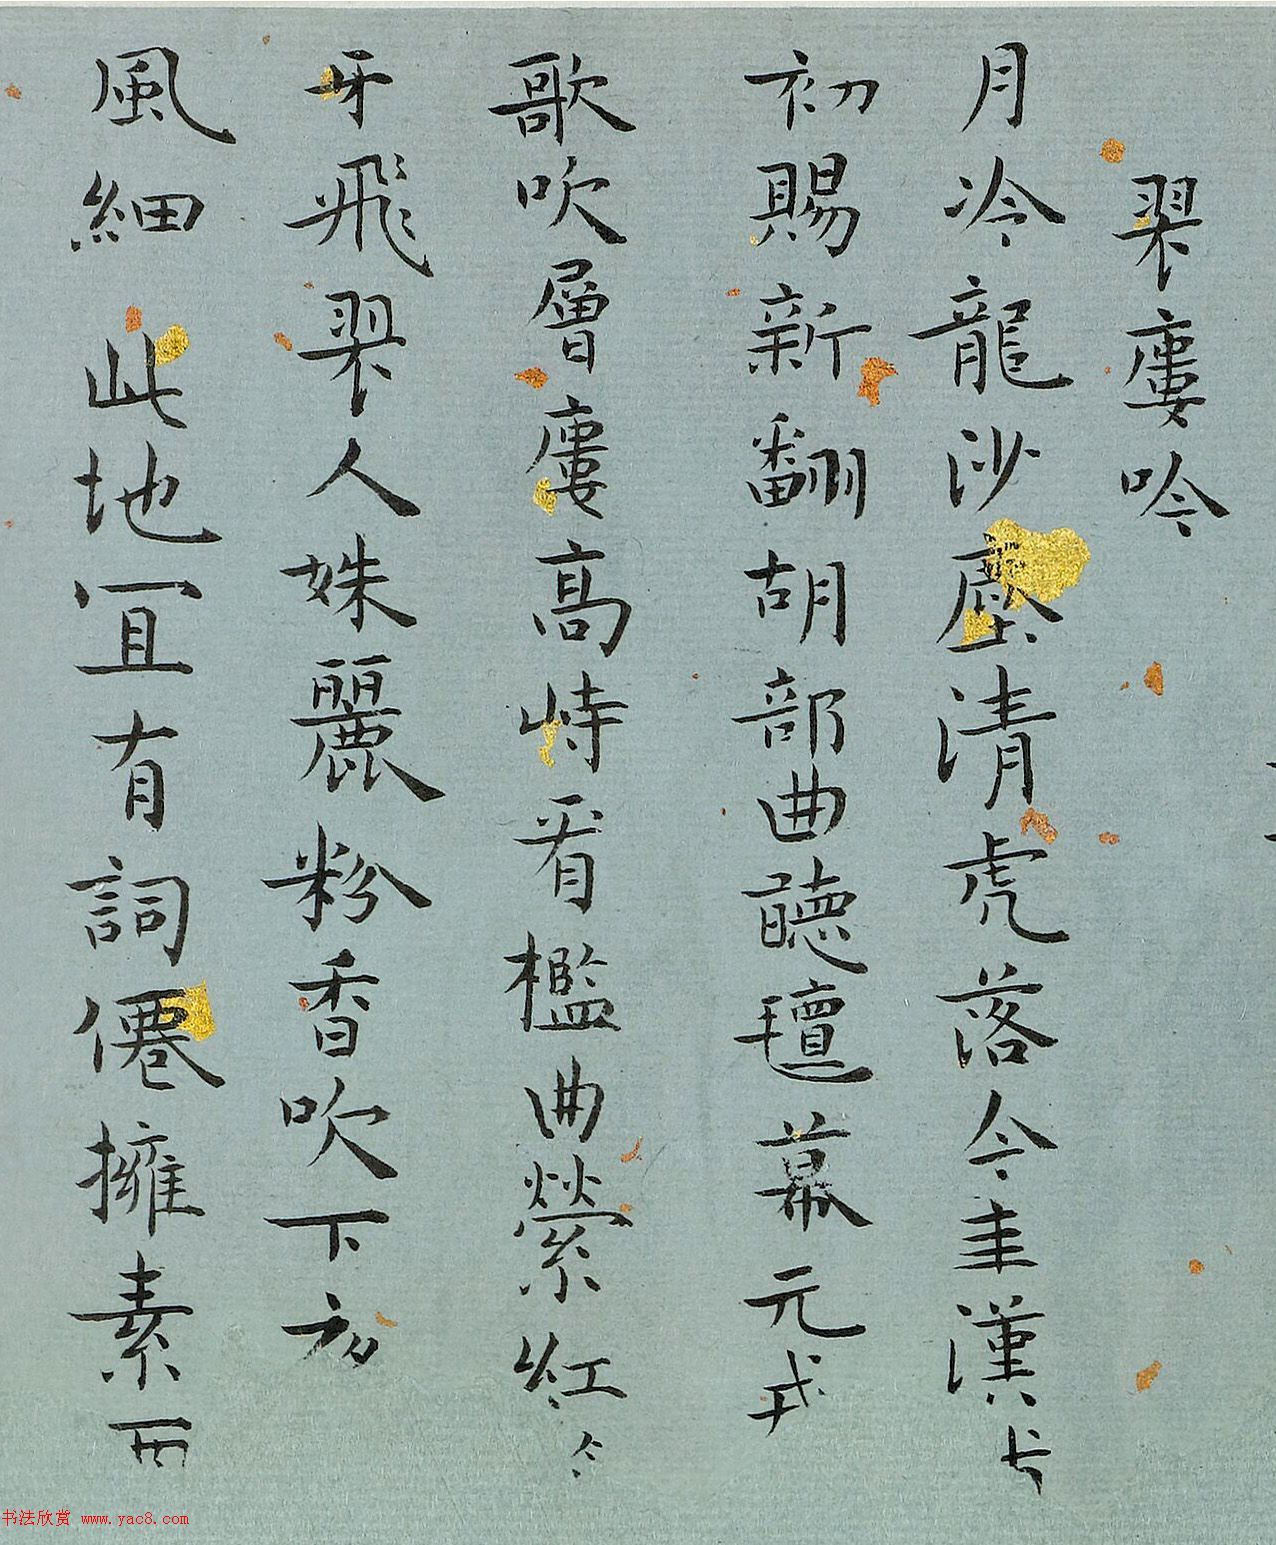 翠廔吟
月冷龍沙塵清虎落今年漢
初賜新翻胡部曲聽氊幕元戎
歌吹層廔高峙看檻曲縈紅
牙飛翠人姝麗粉香吹下
風細 此地冝有詞僊擁素
书法欣赏 www.yac8.com